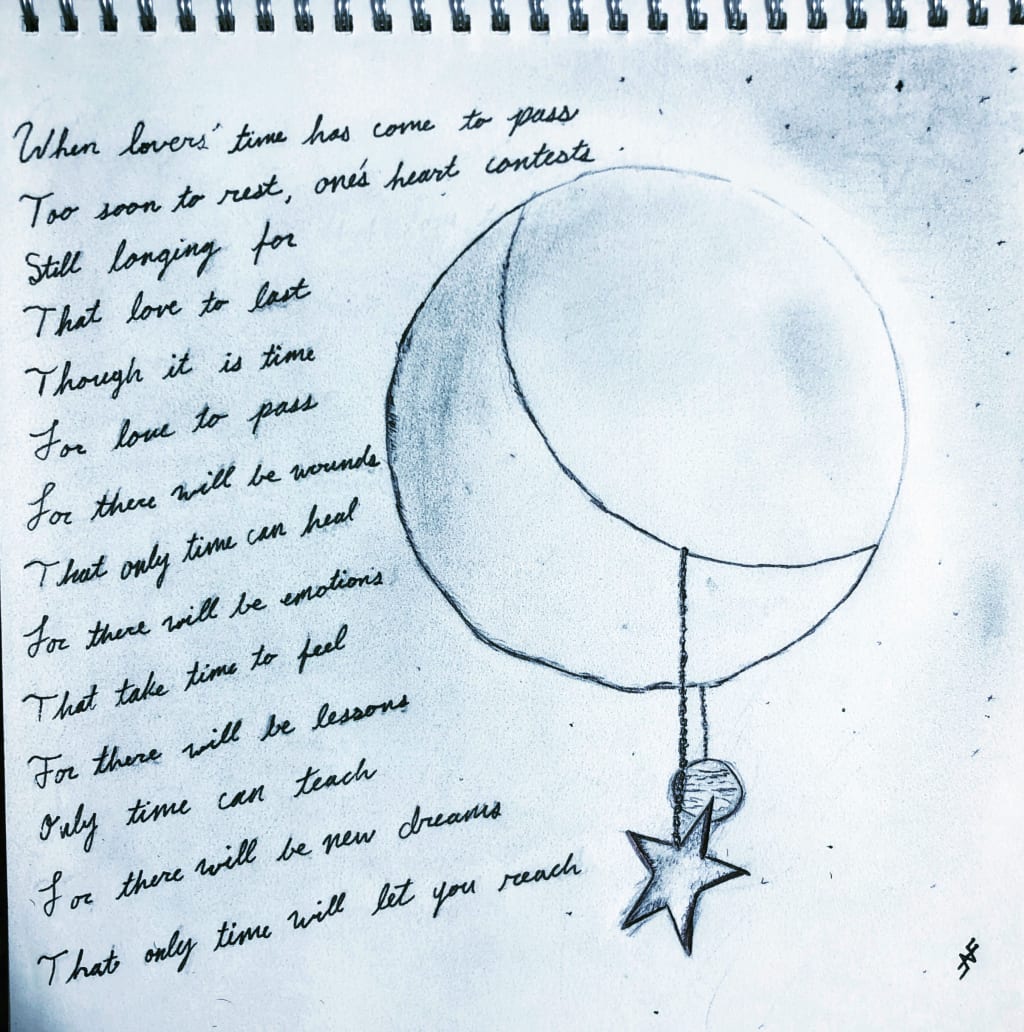 When lovers' time has come to pass
Too soon to rest, one's heart contests.
Still longing for
That love to last
Though it is time
For love to pass
For there will be wounds
That only time can heal
For there will be emotions
That take time to feel
For there will be lessons
Only time can teach
For there will be new dreams
That only time will let you reach